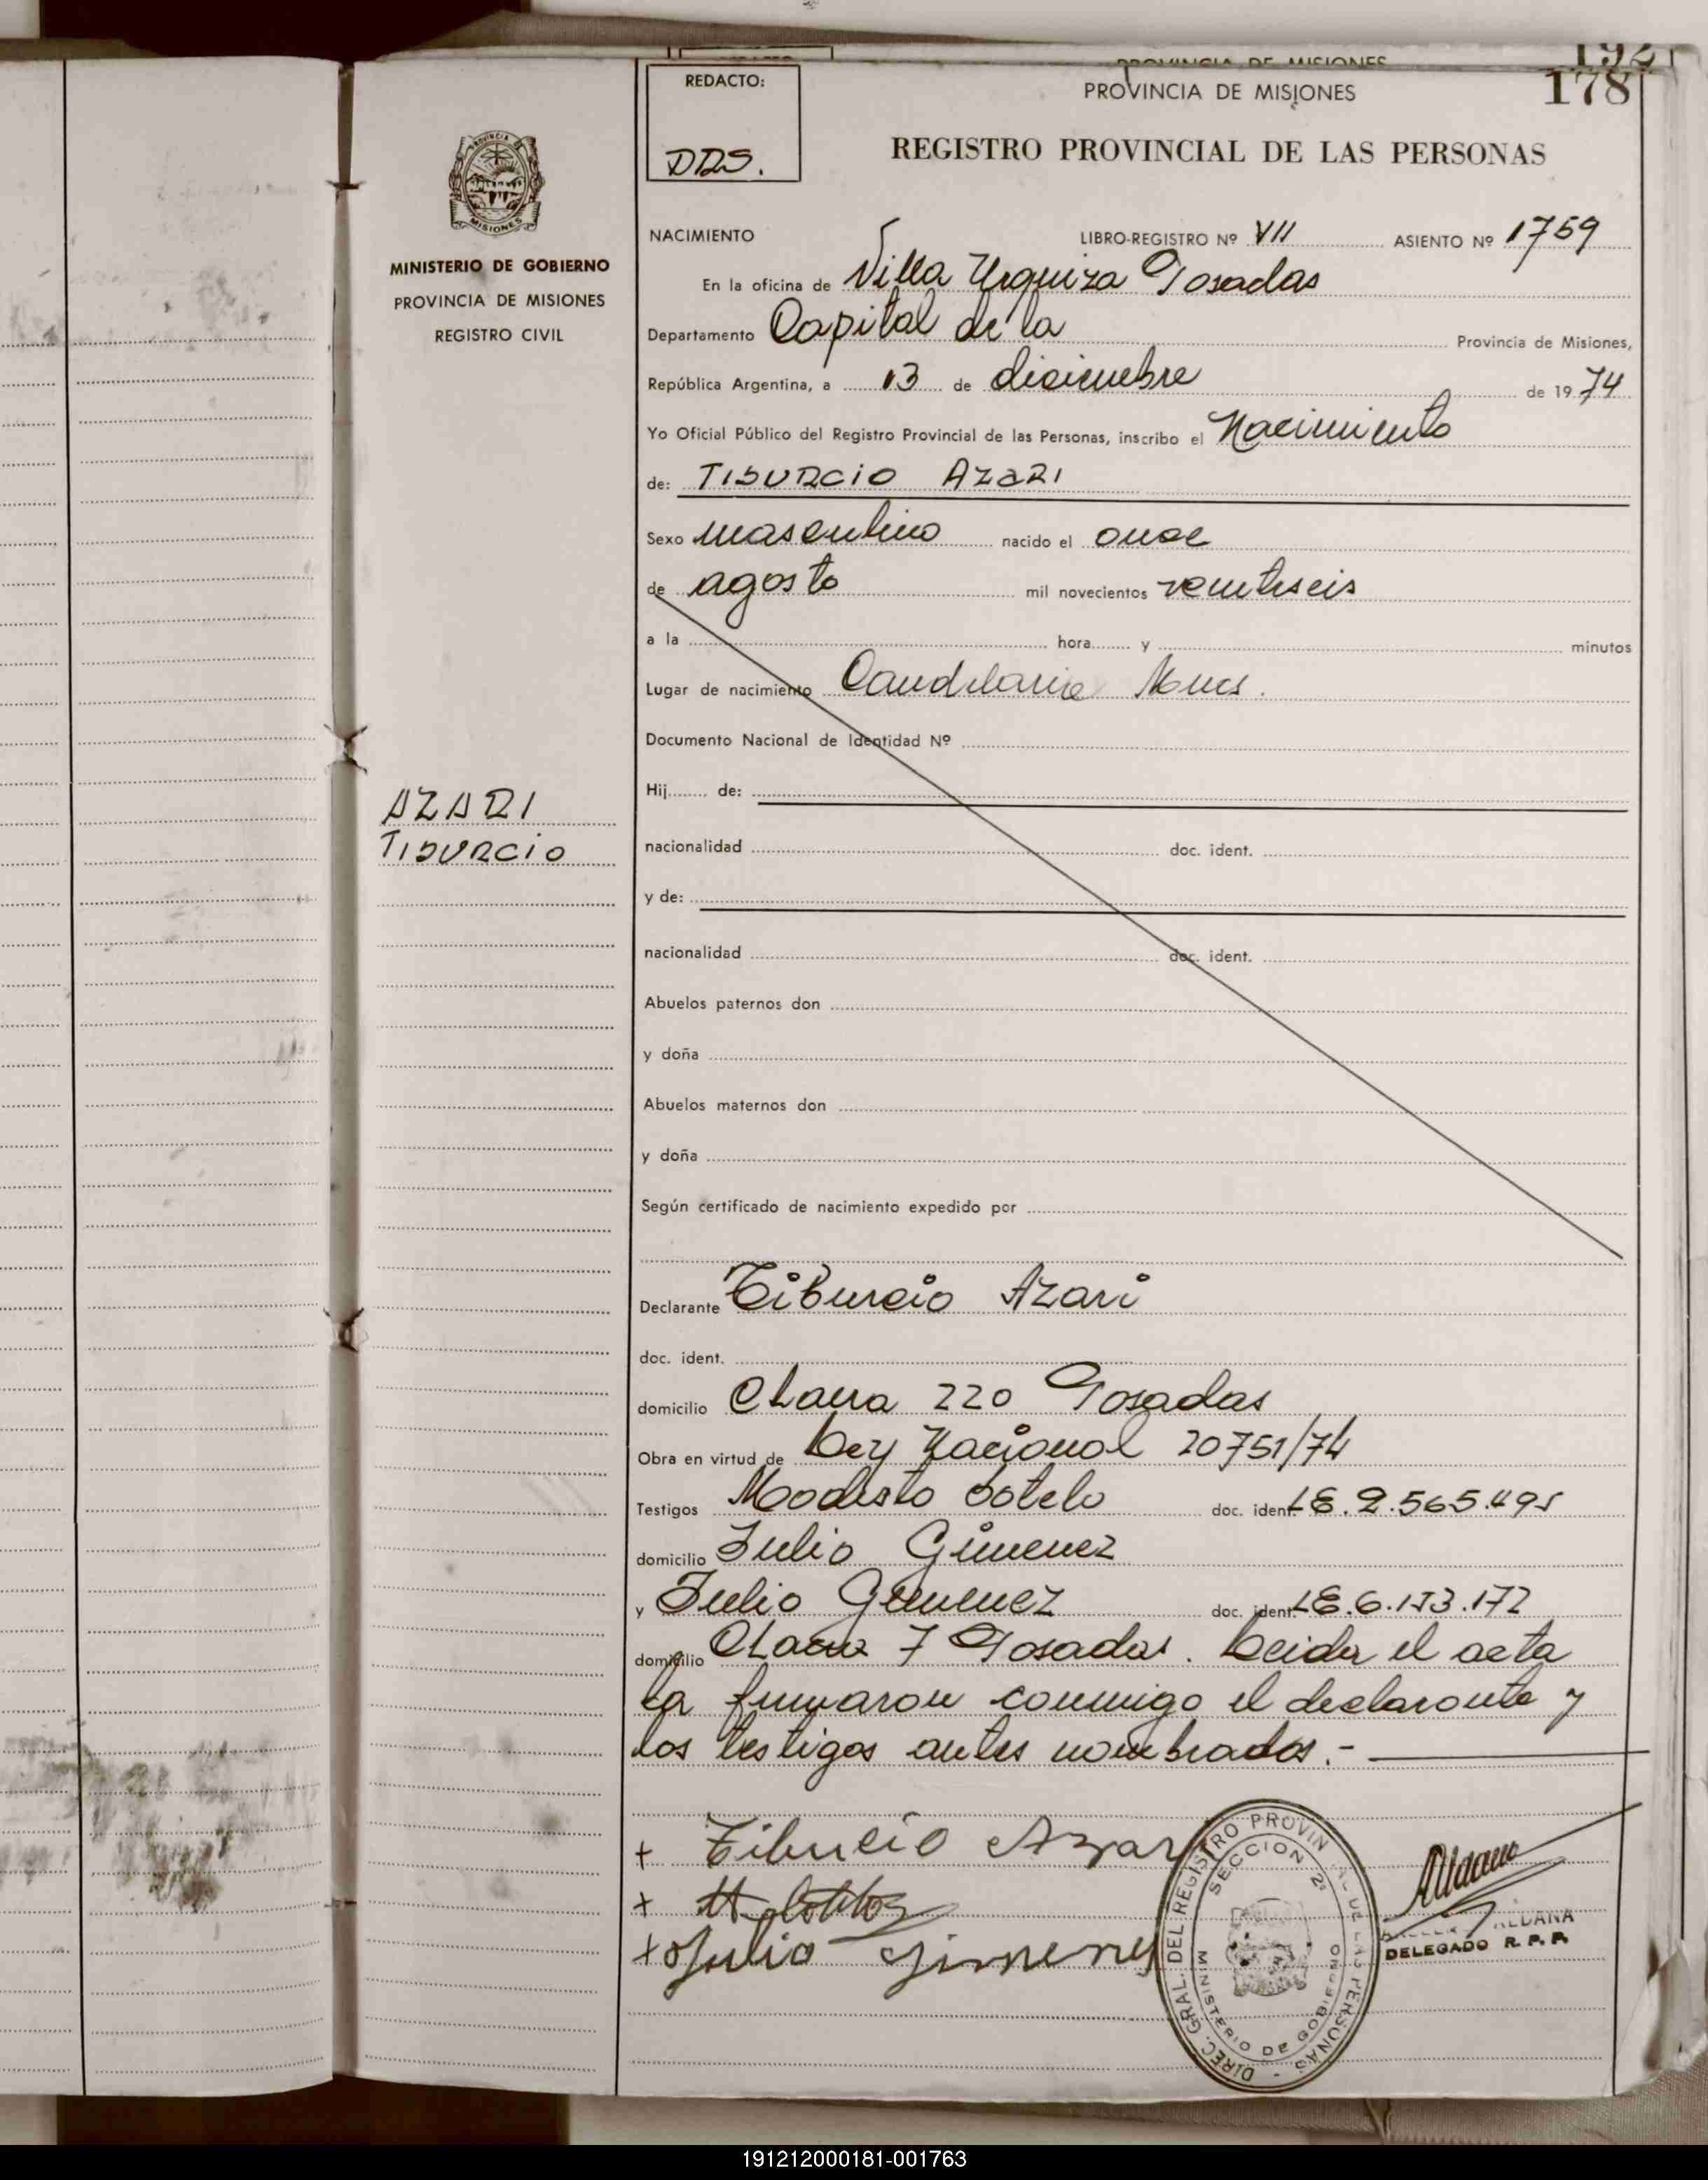 192
PROVINCIA DE MISIONES
178
REDACTO:
PROVINCIA DE MISIONES
DDS.
REGISTRO PROVINCIAL DE LAS PERSONAS
MISIONES
MINISTERIO DE GOBIERNO
PROVINCIA DE MISIONES
REGISTRO CIVIL
NACIMIENTO LIBRO-REGISTRO Nº VII ASIENTO Nº 1759
En la oficina de Villa Urquiza Posadas
Departamento Capital de la Provincia de Misiones,
República Argentina, a 13 de diciembre de 1974
Yo Oficial Público del Registro Provincial de las Personas, inscribo el Nacimiento
de: TIBURCIO AZARI
Sexo masculino nacido el once
de agosto mil novecientos veintiseis
a la hora y minutos
Lugar de nacimiento Candelaria
Documento Nacional de Identidad Nº
Hij de:
AZARI
TIBURCIO
nacionalidad doc. ident.
y de:
nacionalidad doc. ident.
Abuelos paternos don
y doña
Abuelos maternos don
y doña
Según certificado de nacimiento expedido por
Declarante Tiburcio Azari
doc. ident.
domicilio Chacra 220 Posadas
Obra en virtud de Ley Nacional 20751/74
Testigos Modesto Sotelo doc. ident. LE. 2.565.495
domicilio Julio Gimenez
y Julio Gimenez doc. ident. LE. 6.133.172
domicilio Chacra 7 Posadas. Leida el acta
la firmaron conmigo el declarante y
los testigos antes nombrados.-
+ Tibucio Azari
+
+ Julio Gimenez
DIREC. GRAL. DEL REGISTRO PROVINCIAL DE LAS PERSONAS
SECCION 2ª
MINISTERIO DE GOBIERNO
ALDANA
DELEGADO R. P. P.
191212000181-001763